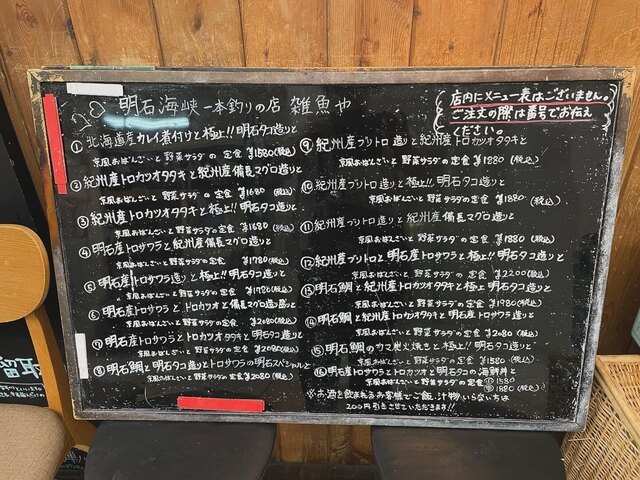 明石海峡 一本釣りの店 雑魚や
店内にメニュー表はございません。
ご注文の際は番号でお伝え
ください。
① 北海道産カレイ煮付けと極上!!明石タコ造りと
京風おばんざいと野菜サラダの定食 ¥1580(税込)
② 紀州産トロカツオタタキと紀州産備長マグロ造りと
京風おばんざいと野菜サラダの定食 ¥1680(税込)
③ 紀州産トロカツオタタキと極上!!明石タコ造りと
京風おばんざいと野菜サラダの定食 ¥1680(税込)
④ 明石産トロサワラと紀州産備長マグロ造りと
京風おばんざいと野菜サラダの定食 ¥1780(税込)
⑤ 明石産トロサワラ造りと極上!!明石タコ造りと
京風おばんざいと野菜サラダの定食 ¥1780(税込)
⑥ 明石産トロサワラとトロカツオと備長マグロ造りと
京風おばんざいと野菜サラダの定食 ¥2080(税込)
⑦ 明石産トロサワラとトロカツオタタキと明石タコ造りと
京風おばんざいと野菜サラダの定食 ¥2080(税込)
⑧ 明石鯛と明石タコ造りとトロサワラの明石スペシャルと
京風おばんざいと野菜サラダの定食 ¥2080(税込)
⑨ 紀州産ブリトロ造りと紀州産トロカツオタタキと
京風おばんざいと野菜サラダの定食 ¥1880(税込)
⑩ 紀州産ブリトロ造りと極上!!明石タコ造りと
京風おばんざいと野菜サラダの定食 ¥1880(税込)
⑪ 紀州産ブリトロ造りと紀州産備長マグロ造りと
京風おばんざいと野菜サラダの定食 ¥1880(税込)
⑫ 紀州産ブリトロと明石産トロサワラと極上!!明石タコ造りと
京風おばんざいと野菜サラダの定食 ¥2200(税込)
⑬ 明石鯛と紀州産トロカツオタタキと極上明石タコ造りと
京風おばんざいと野菜サラダの定食 ¥1980(税込)
⑭ 明石鯛と紀州産トロカツオタタキと明石トロサワラと
京風おばんざいと野菜サラダの定食 ¥2080(税込)
⑮ 明石鯛のカマ炭火焼きと極上!!明石タコ造りと
京風おばんざいと野菜サラダの定食 ¥1580(税込)
⑯ 明石産トロサワラとトロカツオと明石タコの海鮮丼と
京風おばんざいと野菜サラダの定食 1580
1880(税込)
※お酒を飲まれるお客様でご飯、汁物いらない方は
200円引きさせていただきます!!